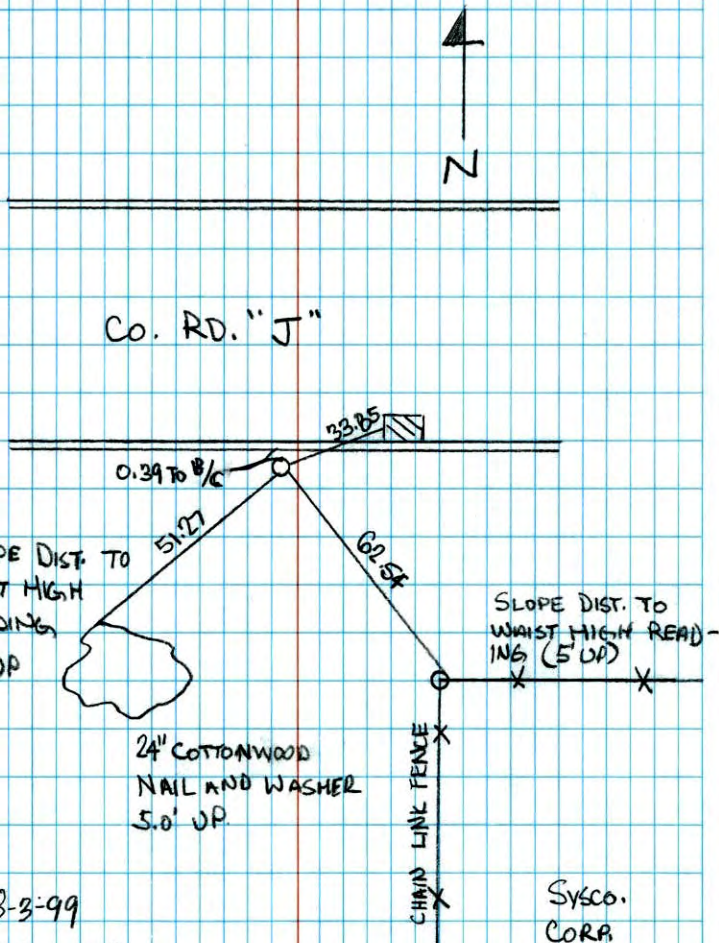 N
CO. RD. "J"
33.85
0.39 TO B/C
51.27
62.54
DIST. TO
HIGH
UP
SLOPE DIST. TO
WAIST HIGH READ-
ING (5' UP)
24" COTTONWOOD
NAIL AND WASHER
5.0' UP.
CHAIN LINK FENCE
-3-99
SYSCO.
CORP.